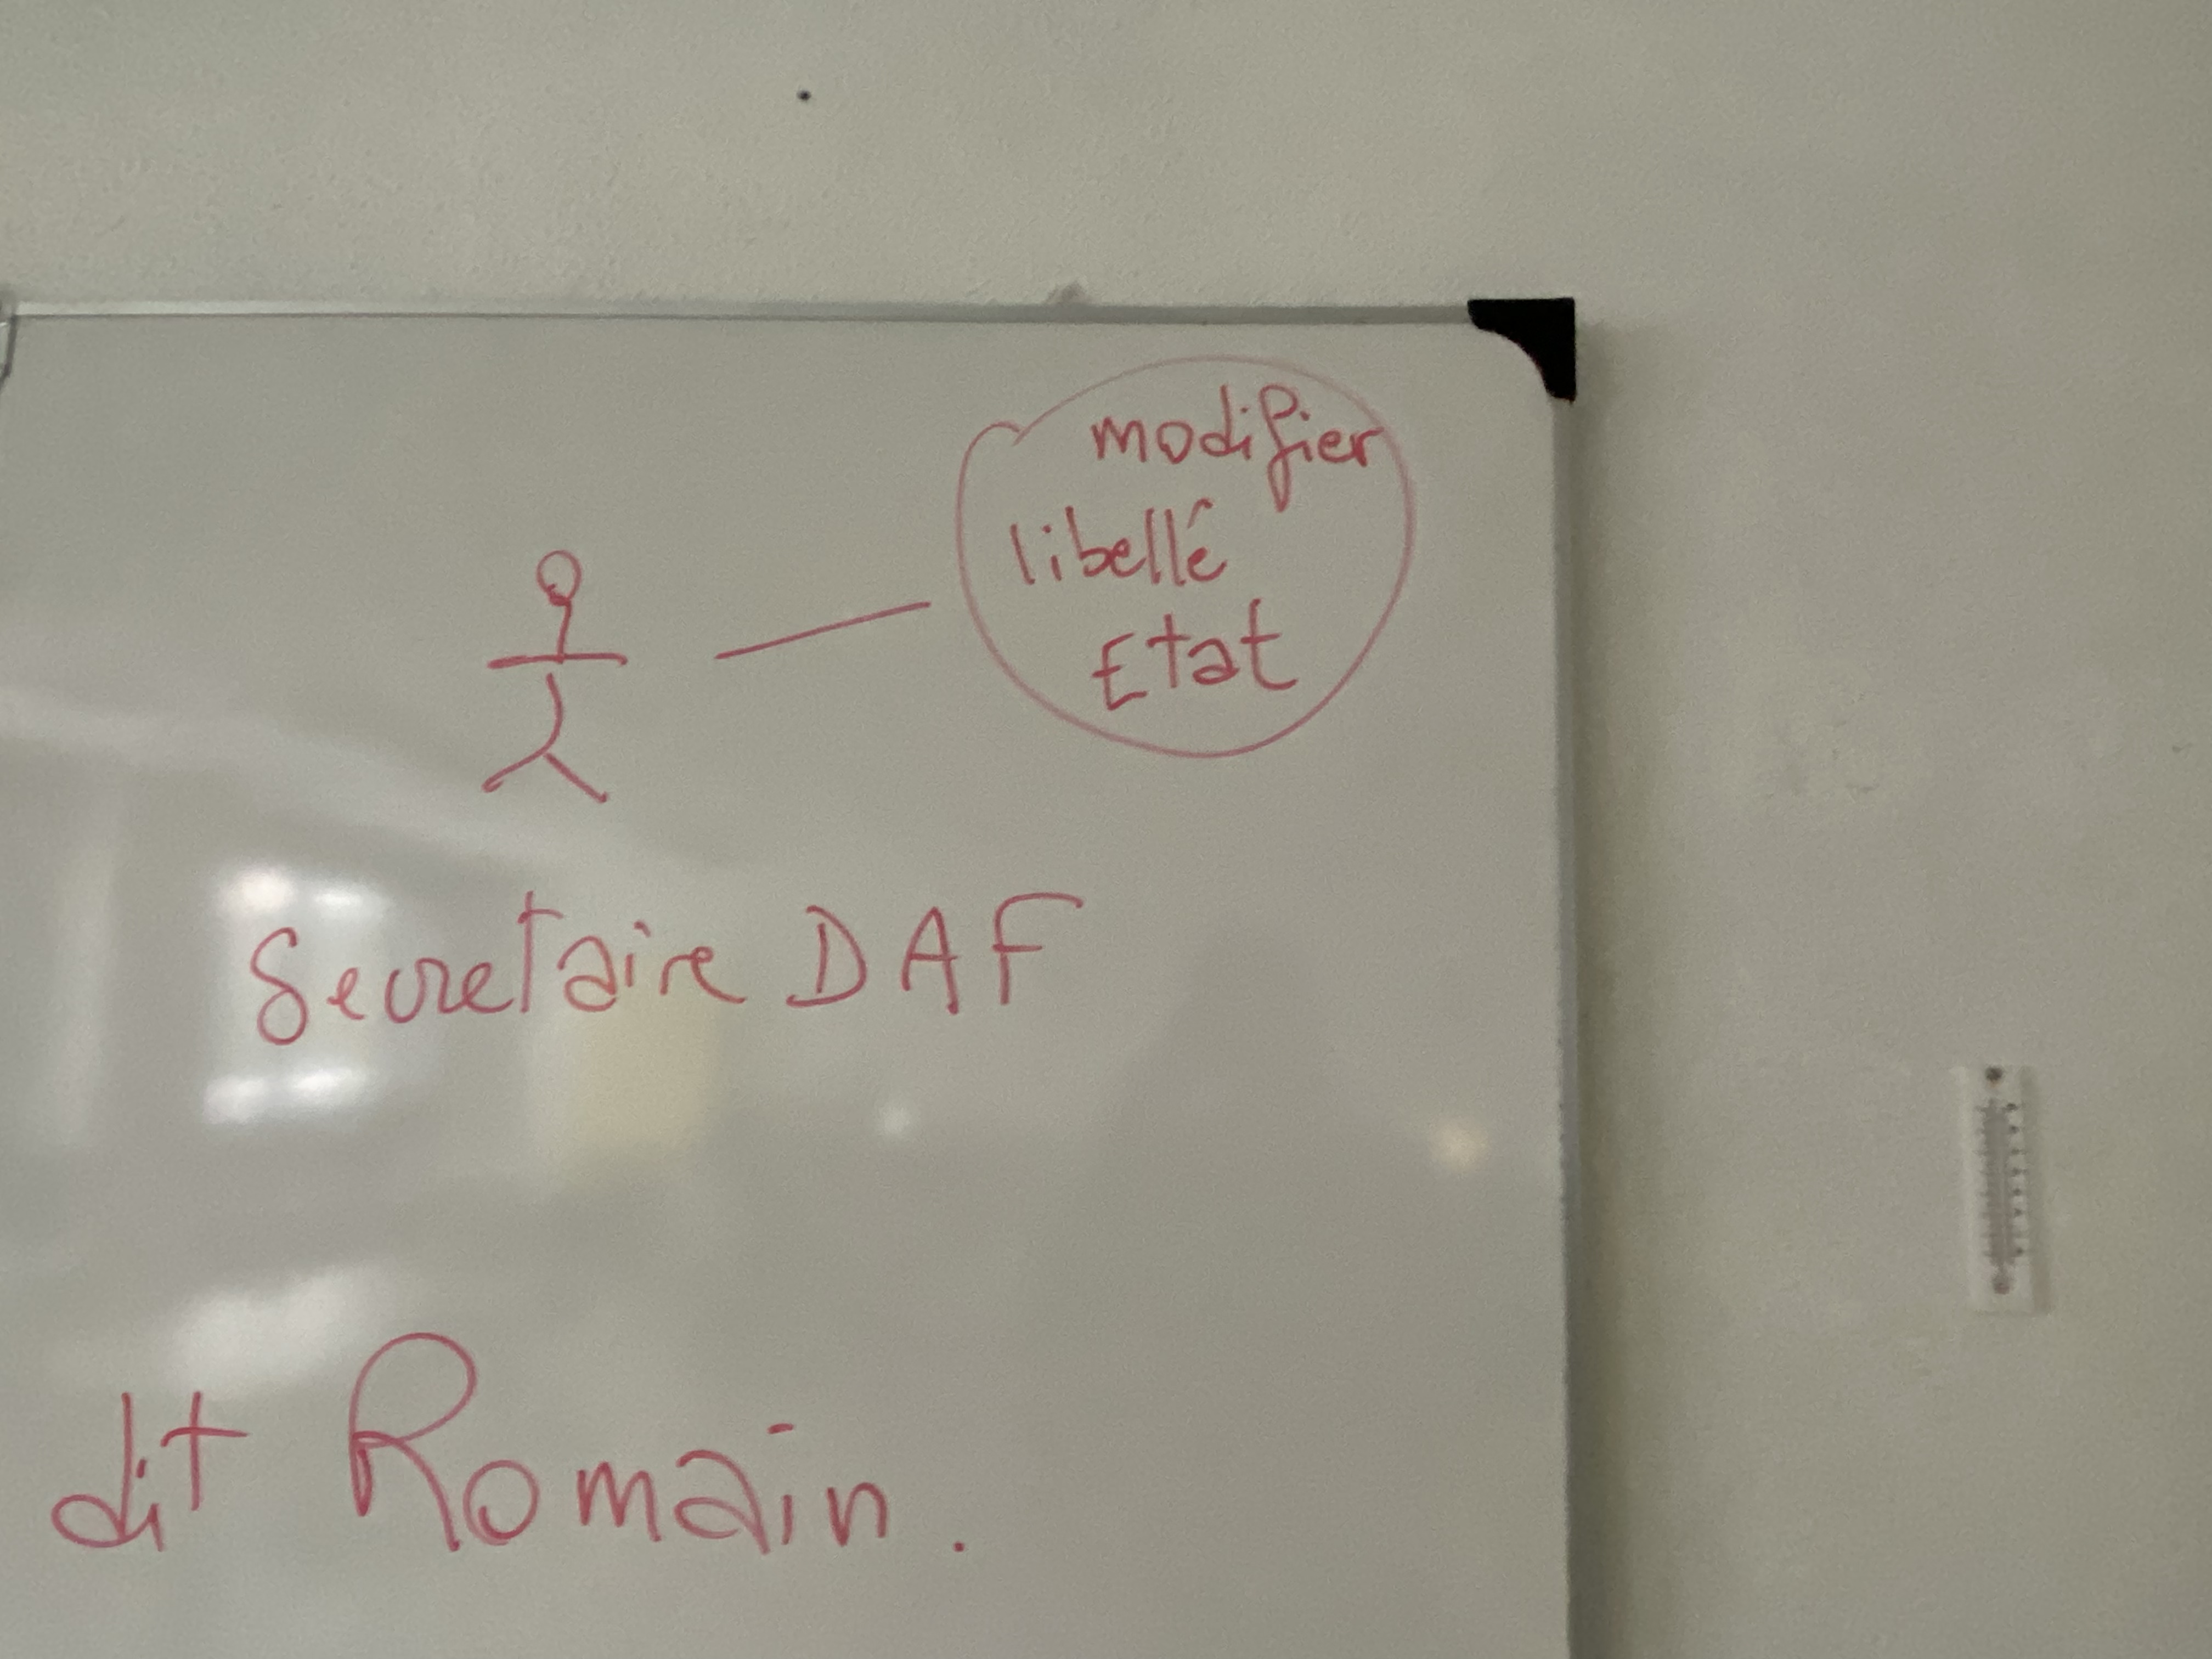 modifier
libellé
Etat
Secretaire DAF
dit Romain.